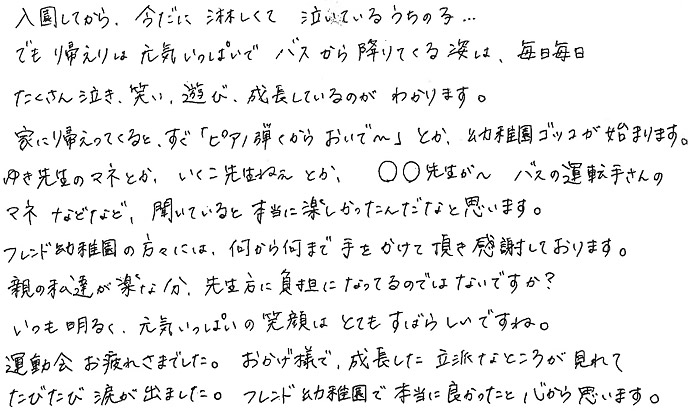 入園してから、今だに 淋しくて 泣いているうちの子…
でも 帰えりは 元気いっぱいで バスから降りてくる姿は、毎日毎日
たくさん泣き、笑い、遊び、成長しているのが わかります。
家に帰えってくると、すぐ「ピアノ弾くから おいで〜」とか、幼稚園ゴッコが始まります。
ゆき先生のマネとか、いくこ先生ねぇ とか、 〇〇先生が〜 バスの運転手さんの
マネ などなど、聞いていると 本当に楽しかったんだなと思います。
フレンド幼稚園の方々には、何から何まで 手をかけて頂き感謝しております。
親の私達が楽な分、先生方に負担になってるのではないですか?
いつも明るく、元気いっぱいの笑顔は とてもすばらしいですね。
運動会 お疲れさまでした。 おかげ様で、成長した 立派なところが見れて
たびたび 涙が出ました。 フレンド幼稚園で 本当に良かったと 心から思います。